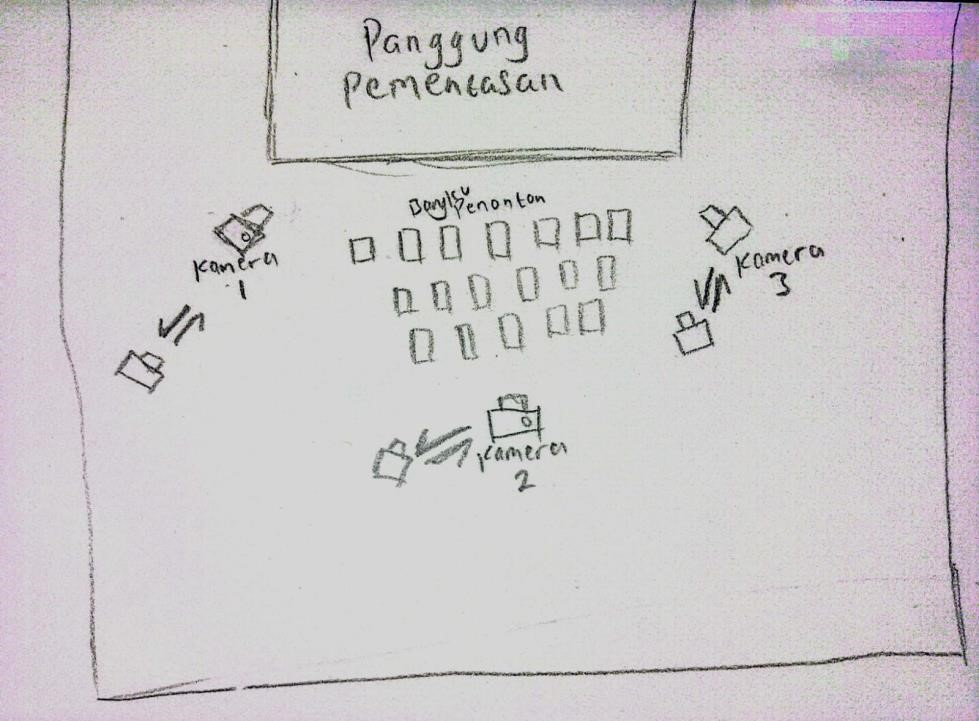 Panggung
Pementasan
Penonton
Kamera
1
Kamera
3
Kamera
2